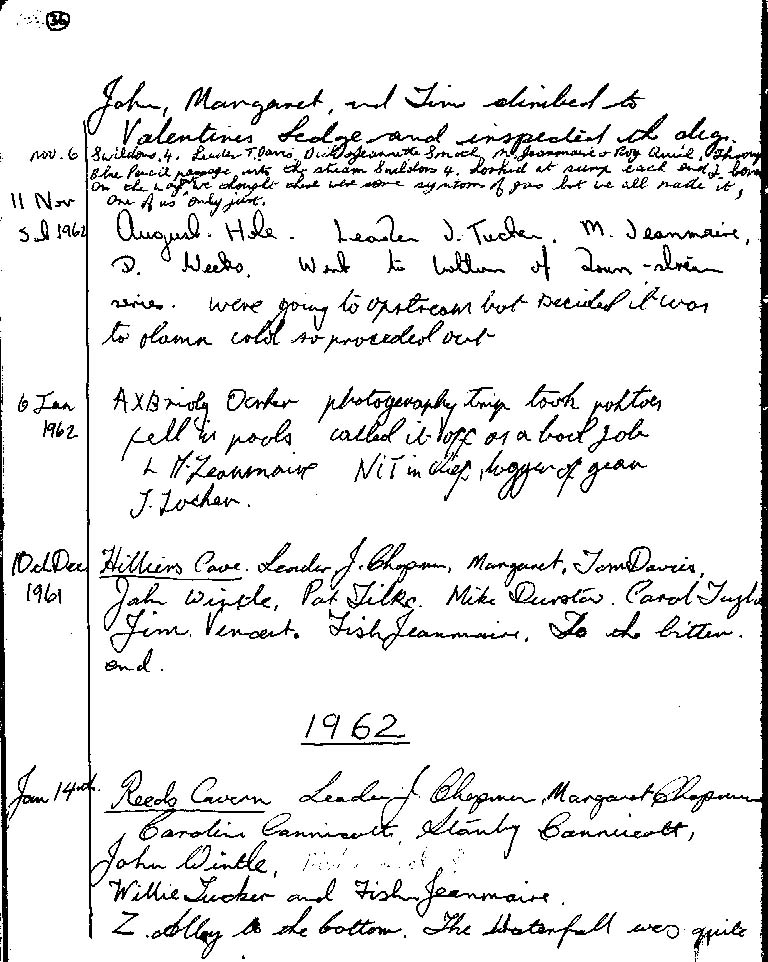 36
John, Margaret, and Jim climbed to
Valentines Ledge and inspected the dig.
Nov. 6 Swildons. 4. Leader T. Davis, Dick & Jeannette Smock, M. Jeanmaire & Roy
Blue Pencil passage into the stream Swildons 4. Looked at sump each end
On the way we thought there were some symtom of gas but we all made it,
11 Nov one of us only just.
1962 August. Hole. Leader J. Tucker, M. Jeanmaire,
D. Weeks. Went to bottom of down-stream
series. were going to upstream but decided it was
to damn cold so proceded out
6 Jan AXBridg Ocher photography trip took
1962 fell in pools called it off as a bad job
L M. Jeanmaire NIT in chief, lugger of gear
J. Tucker.
Dec Hilliers Cave. Leader J. Chapman, Margaret, Tom Davies,
1961 John Wintle, Pat Mike Carol
Jim Vincent. Fish Jeanmaire. To the bitter
end.
1962
Jan 14th. Reeds Cavern Leader J. Chapman, Margaret Chapman
Caroline Stanley
John Wintle,
Willie Tucker and Fish Jeanmaire.
Z. alley to the bottom. The Waterfall was quite